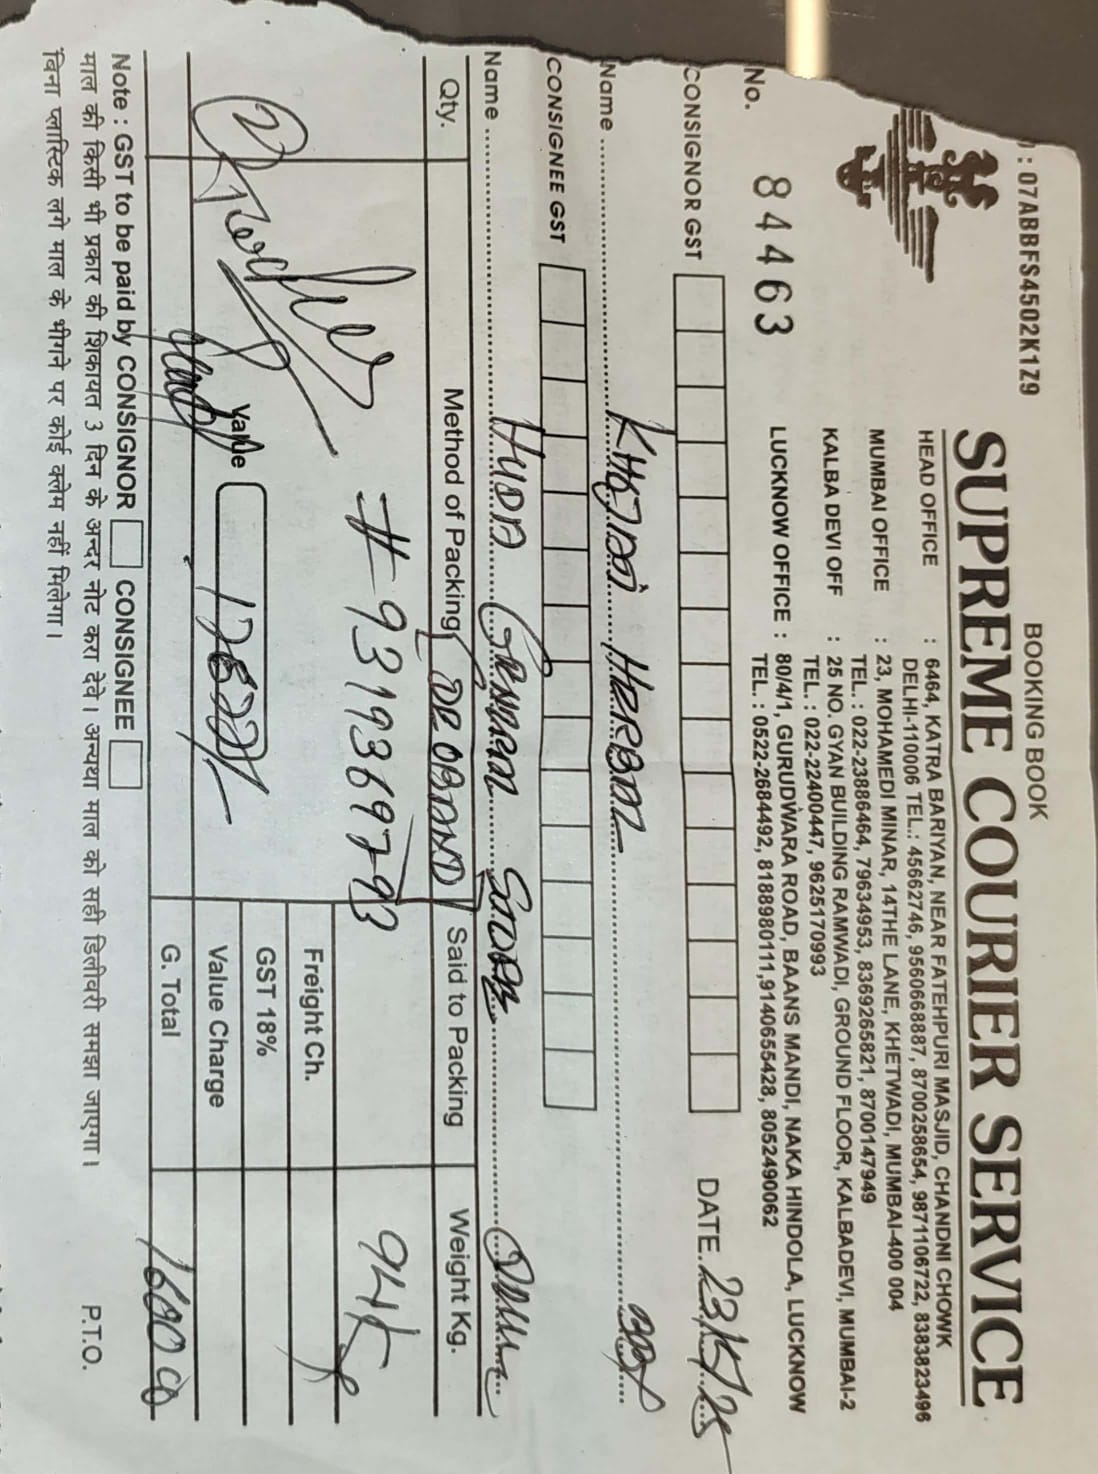 : 07ABBFS4502K1Z9
BOOKING BOOK
SUPREME COURIER SERVICE
HEAD OFFICE : 6464, KATRA BARIYAN, NEAR FATEHPURI MASJID, CHANDNI CHOWK
DELHI-110006 TEL.: 45662746, 9560668887, 8700258654, 9871106722, 8383823496
MUMBAI OFFICE : 23, MOHAMEDI MINAR, 14THE LANE, KHETWADI, MUMBAI-400 004
TEL. : 022-23886464, 79634953, 8369265821, 8700147949
KALBA DEVI OFF : 25 NO. GYAN BUILDING RAMWADI, GROUND FLOOR, KALBADEVI, MUMBAI-2
TEL. : 022-22400447, 9625170993
LUCKNOW OFFICE : 80/4/1, GURUDWARA ROAD, BAANS MANDI, NAKA HINDOLA, LUCKNOW
TEL. : 0522-2684492, 8188980111, 9140655428, 8052490062
No. 84463
DATE
CONSIGNOR GST
Name HERBAL
CONSIGNEE GST
Name HUDA GENERAL STORE
Qty. Method of Packing (DEOBAND) Said to Packing Weight Kg.
# 9319369793 94K
Freight Ch.
GST 18%
Value Charge
Value
G. Total
Note : GST to be paid by CONSIGNOR CONSIGNEE P.T.O.
माल की किसी भी प्रकार की शिकायत 3 दिन के अन्दर नोट करा देवे। अन्यथा माल को सही डिलीवरी समझा जाएगा।
बिना प्लास्टिक लगे माल के भीगने पर कोई क्लेम नहीं मिलेगा।